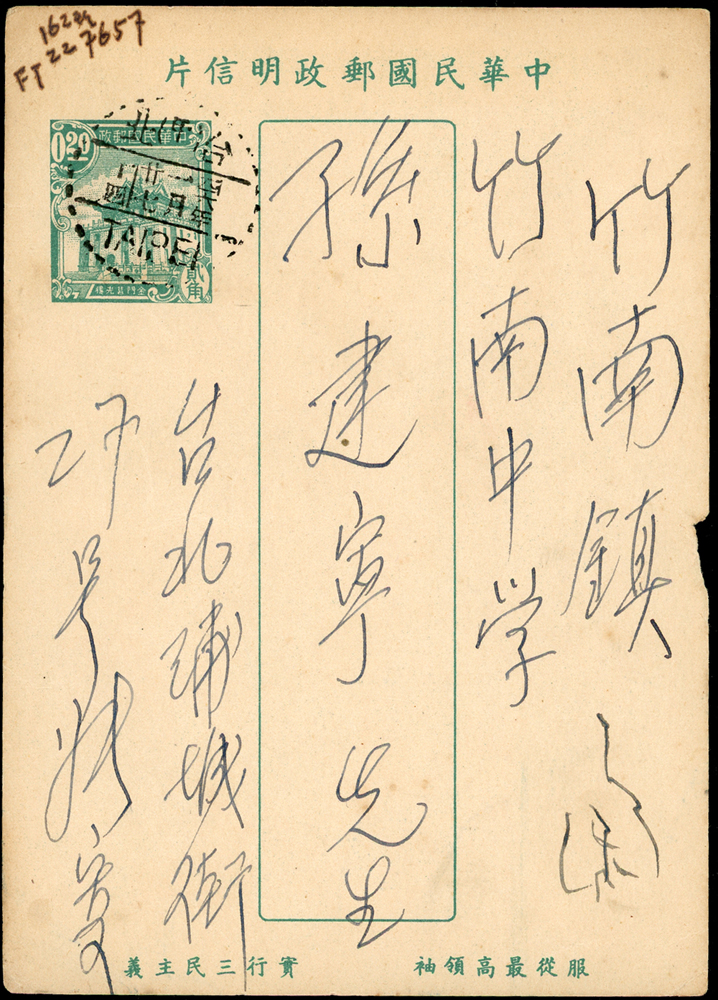 1622
FT 227657
片信明政郵國民華中
中華民國郵政
0.20
貳角
金門莒光樓
TAIPEI
竹南鎮
竹南中学
孫建寧先生
台北浦城街
号
寄
服從最高領袖
實行三民主義